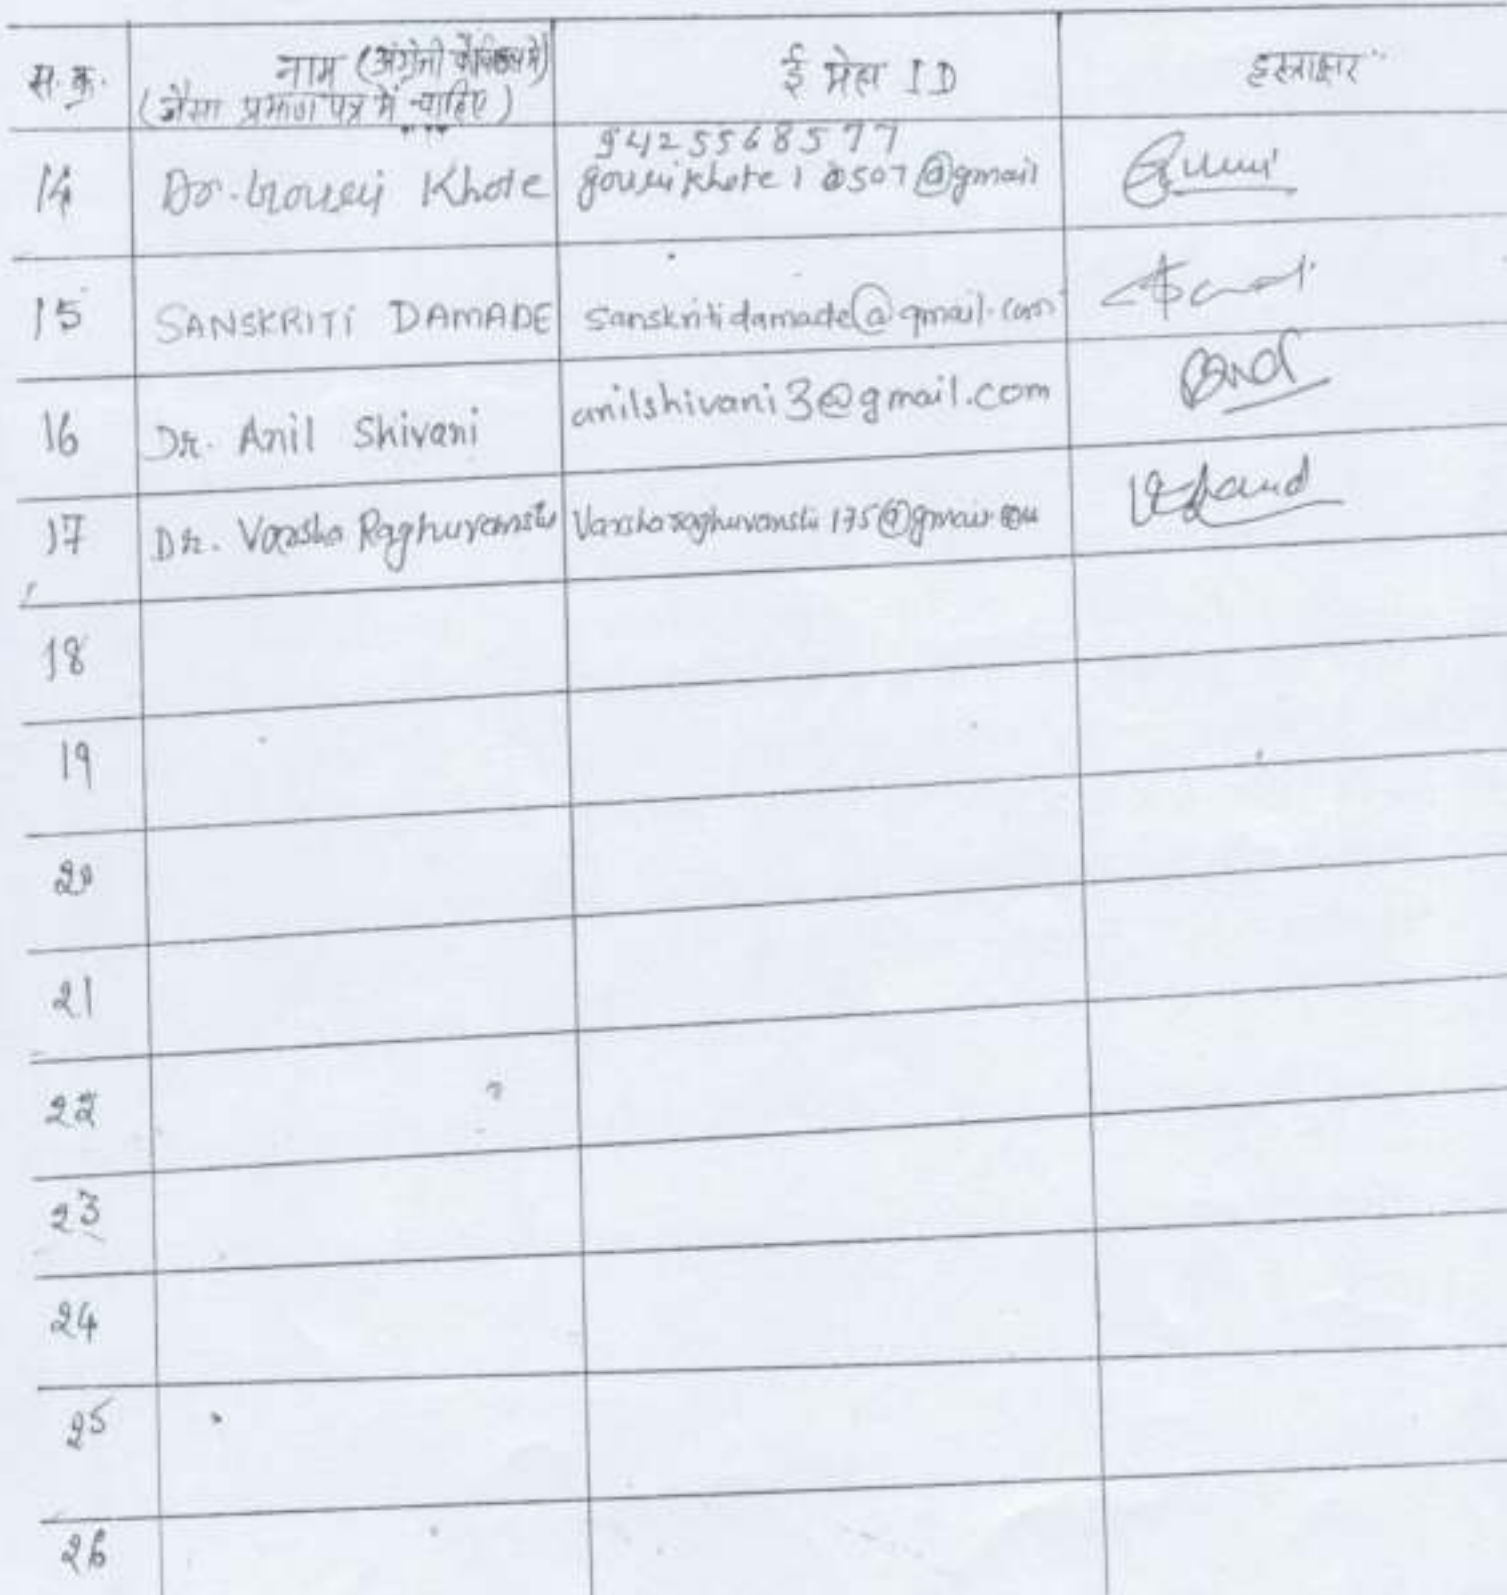 स.क्र. नाम (अंग्रेजी कैपिटल में) ई मेल ID हस्ताक्षर
(जैसा प्रमाण पत्र में चाहिए)
9425568577
14 Dr. Gouri Khote gourikhote10507@gmail
15 SANSKRITI DAMADE sanskritidamade@gmail.com
16 Dr. Anil Shivani anilshivani3@gmail.com
17 Dr. Varsha Raghuvanshi Varsharaghuvanshi175@gmail.com
18
19
20
21
22
23
24
25
26